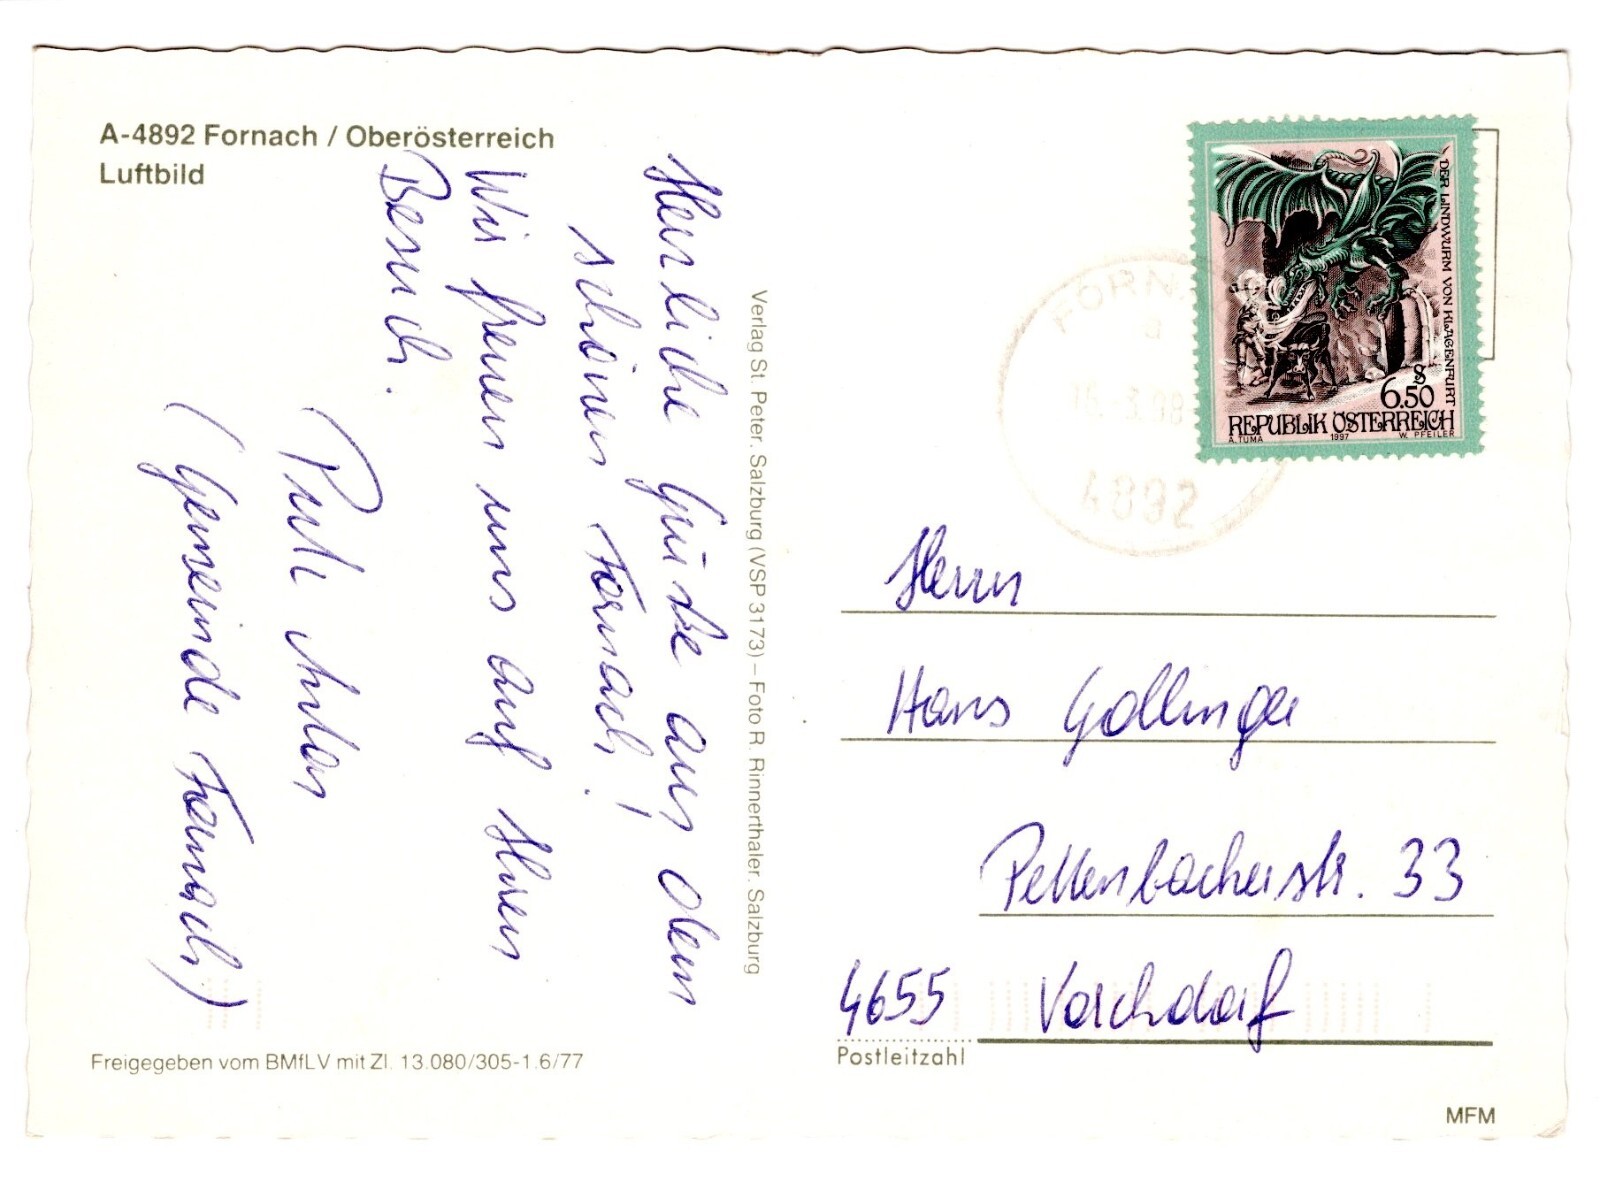 A-4892 Fornach / Oberösterreich
Luftbild
Herzliche Grüße aus dem
schönen Fornach!
Wir freuen uns auf Ihren
Besuch.
(Gemeinde Fornach)
Verlag St. Peter, Salzburg (VSP 3173) – Foto R. Rinnerthaler, Salzburg
Freigegeben vom BMfLV mit Zl. 13.080/305-1.6/77
DER LINDWURM VON KLAGENFURT
S 6.50
REPUBLIK ÖSTERREICH
A. TUMA 1997 W. PFEILER
4892
Herrn
Hans Gollinger
Pettenbacherstr. 33
4655 Vorchdorf
Postleitzahl
MFM